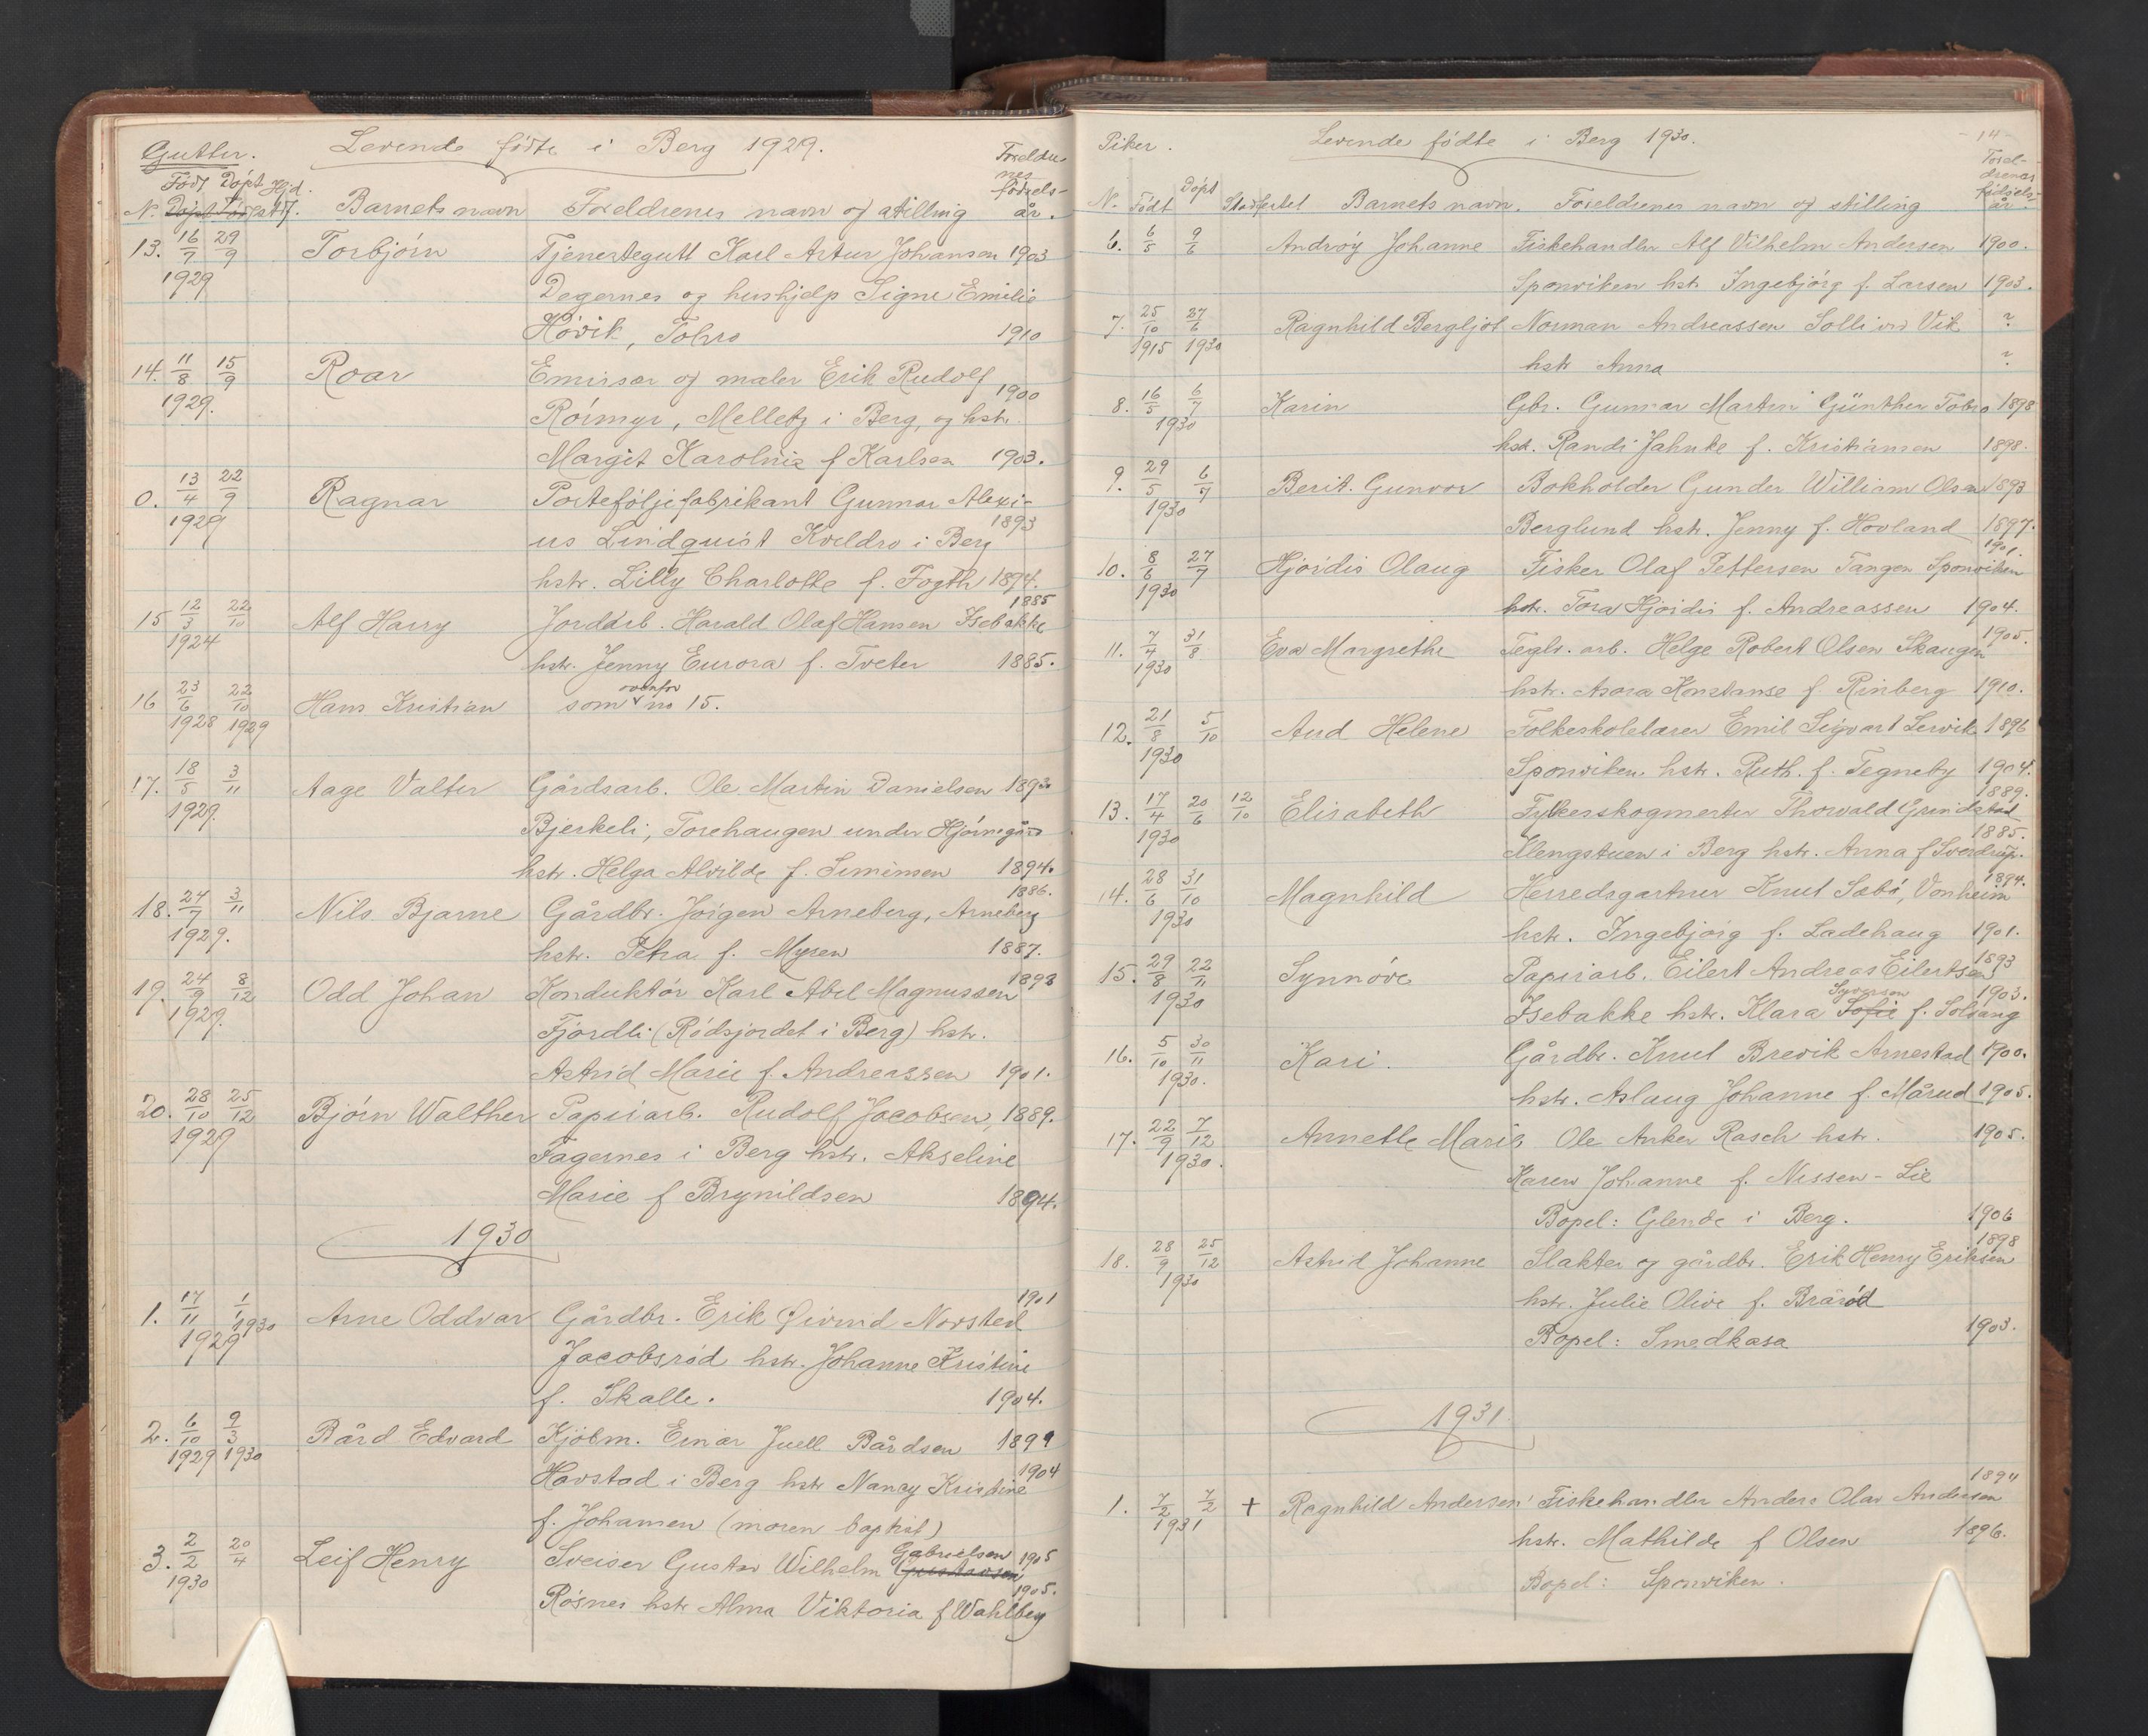 Gutter. Levende födte i Berg 1929. Foreldre-
nes
födsels-
Födt Döpt Hjd.
N. Döpt Födt stf. Barnets navn Foreldrenes navn og stilling år.
13. 16/7 29/9 Torbjörn Tjenertegutt Karl Artur Johansen 1903
1929 Degernes og hushjelp Signe Emilie
Hövik, Tobro 1910
14. 11/8 15/9 Roar Emissær og maler Erik Rudolf
1929. 1900
Rörmyr, Melleby i Berg, og hstr.
Margit Karoline f Karlsen 1903.
0. 13/4 22/9 Ragnar Porteföljefabrikant Gunnar Alexi-
1929 1893
us Lindquist Kveldro i Berg
hstr. Lilly Charlotte f. Fogth 1894.
1885
15 12/3 22/10 Alf Harry Jordarb. Harald Olaf Hansen Isebakke
1924 hstr. Jenny Eurora f. Tveter 1885.
16 23/6 22/10 Hans Kristian som ovenfor no 15.
1928 1929
17. 18/5 3/11 Aage Valter Gårdsarb. Ole Martin Danielsen 1893
1929 Bjerkeli, Torehaugen under Hjörnegård
hstr. Helga Alvilde f. Simensen 1894.
1886.
18. 24/7 3/11 Nils Bjarne Gårdbr. Jörgen Arneberg, Arneberg
1929. hstr. Petra f. Mysen 1887.
19. 24/9 8/12 Odd Johan Konduktör Karl Abel Magnussen 1898
1929. Fjordli (Rödsjordet i Berg) hstr.
Astrid Marie f. Andreassen 1901.
20. 28/10 25/12 Björn Walther Papirarb. Rudolf Jacobsen, 1889.
1929 Fagernes i Berg hstr. Akseline
Marie f Brynildsen 1894.
1930
1901
1. 17/11 1/1 Arne Oddvar Gårdbr. Erik Öivind Norsted
1929 1930
Jacobsröd hstr. Johanne Kristine
f. Skalle. 1904.
2. 6/10 9/3 Bård Edvard Kjöbm. Einar Juell Bårdsen 1899
1929 1930 1904
Havstad i Berg hstr Nancy Kristine
f. Johansen (moren baptist)
Gabrielsen
3. 2/2 20/4 Leif Henry Sveiser Gustav Wilhelm Gustavsen 1905
1930 1905.
Rösnes hstr Alma Viktoria f Wahlberg
- 14 -
Piker. Levende födte i Berg 1930. Forel-
drenes
födsels-
N. Födt Döpt Stadfestet Barnets navn. Foreldrenes navn og stilling år.
6. 6/5 9/6 Andröy Johanne Fiskehandler Alf Vilhelm Andersen 1900.
Sponviken hstr Ingebjörg f. Larsen 1903.
7. 25/10 27/6 Ragnhild Bergljot Norman Andreassen Solli v/ Vik ?
1915 1930 hstr Anna ?
8. 16/5 6/7 Karin Gbr. Gunnar Martin Günther Tobro 1898
1930 hstr. Randi Jahnke f. Kristiansen 1898.
9. 29/5 6/7 Berit. Gunvor Bokholder Gunder William Olsen 1893
1930 Berglund hstr. Jenny f. Hovland 1897.
1901.
10. 8/6 27/7 Hjördis Olaug Fisker Olaf Pettersen Tangen Sponviken
1930 hstr. Tora Hjördis f. Andreassen 1904.
1905.
11. 7/4 31/8 Eva Margrethe Teglv. arb. Helge Robert Olsen Skaugen
1930 hstr. Asora Konstanse f. Rinberg 1910.
12. 21/8 5/10 Aud Helene Folkeskolelærer Emil Sigvart Lervik 1896
1930 Sponviken hstr. Ruth. f. Tegneby 1904.
1889.
13. 17/4 20/6 12/10 Elisabeth Fylkesskogmester Thorvald Grindstad
1930 1885.
Klengstuen i Berg hstr. Anna f Sverdrup.
1894.
14. 28/6 31/10 Magnhild Herredsgartner Knut Sæbö, Vonheim
1930 hstr. Ingebjörg f. Ladehaug 1901.
1893
15. 29/8 22/11 Synnöve Papirarb. Eilert Andreas Eilertsen
1930 Syversen 1903.
Isebakke hstr. Klara Sofie f. Solvang
16. 5/10 30/11 Kari. Gårdbr. Knut Brevik Arnestad 1900.
1930. hstr. Aslaug Johanne f. Mårud 1905.
17. 22/9 7/12 Annette Marie Ole Anker Rasch hstr. 1905.
1930. Karen Johanne f. Nissen-Lie
Bopel: Glende i Berg. 1906
1898
18. 28/9 25/12 Astrid Johanne Slakter og gårdbr. Erik Henry Eriksen
1930 hstr. Julie Olive f. Braröd
Bopel: Smedkasa 1903.
1931
1894
1. 7/2 7/2 + Ragnhild Andersen Fiskehandler Anders Olav Andersen
1931 hstr. Mathilde f Olsen 1896.
Bopel: Sponviken.